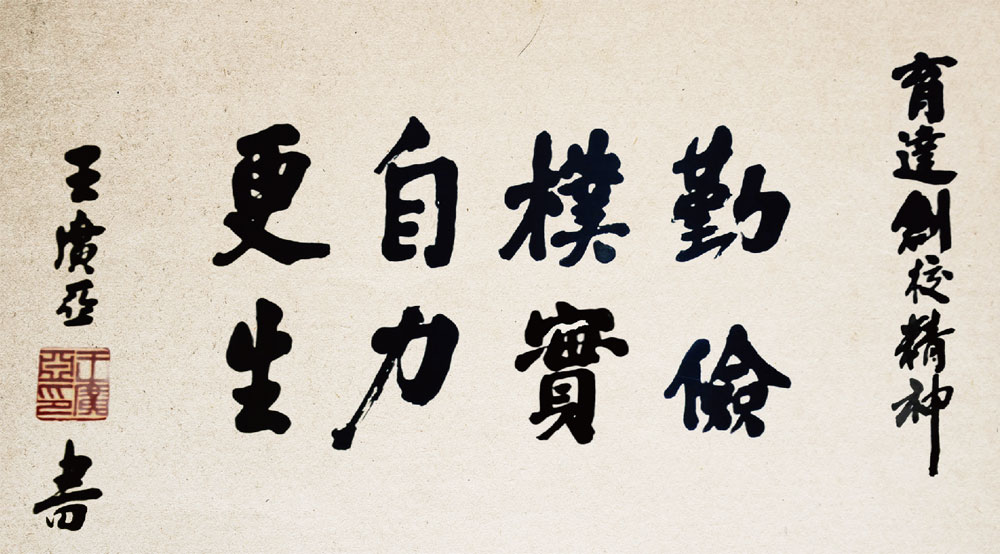 育達創校精神
勤儉
樸實
自力
更生
王廣亞
王廣亞印
書